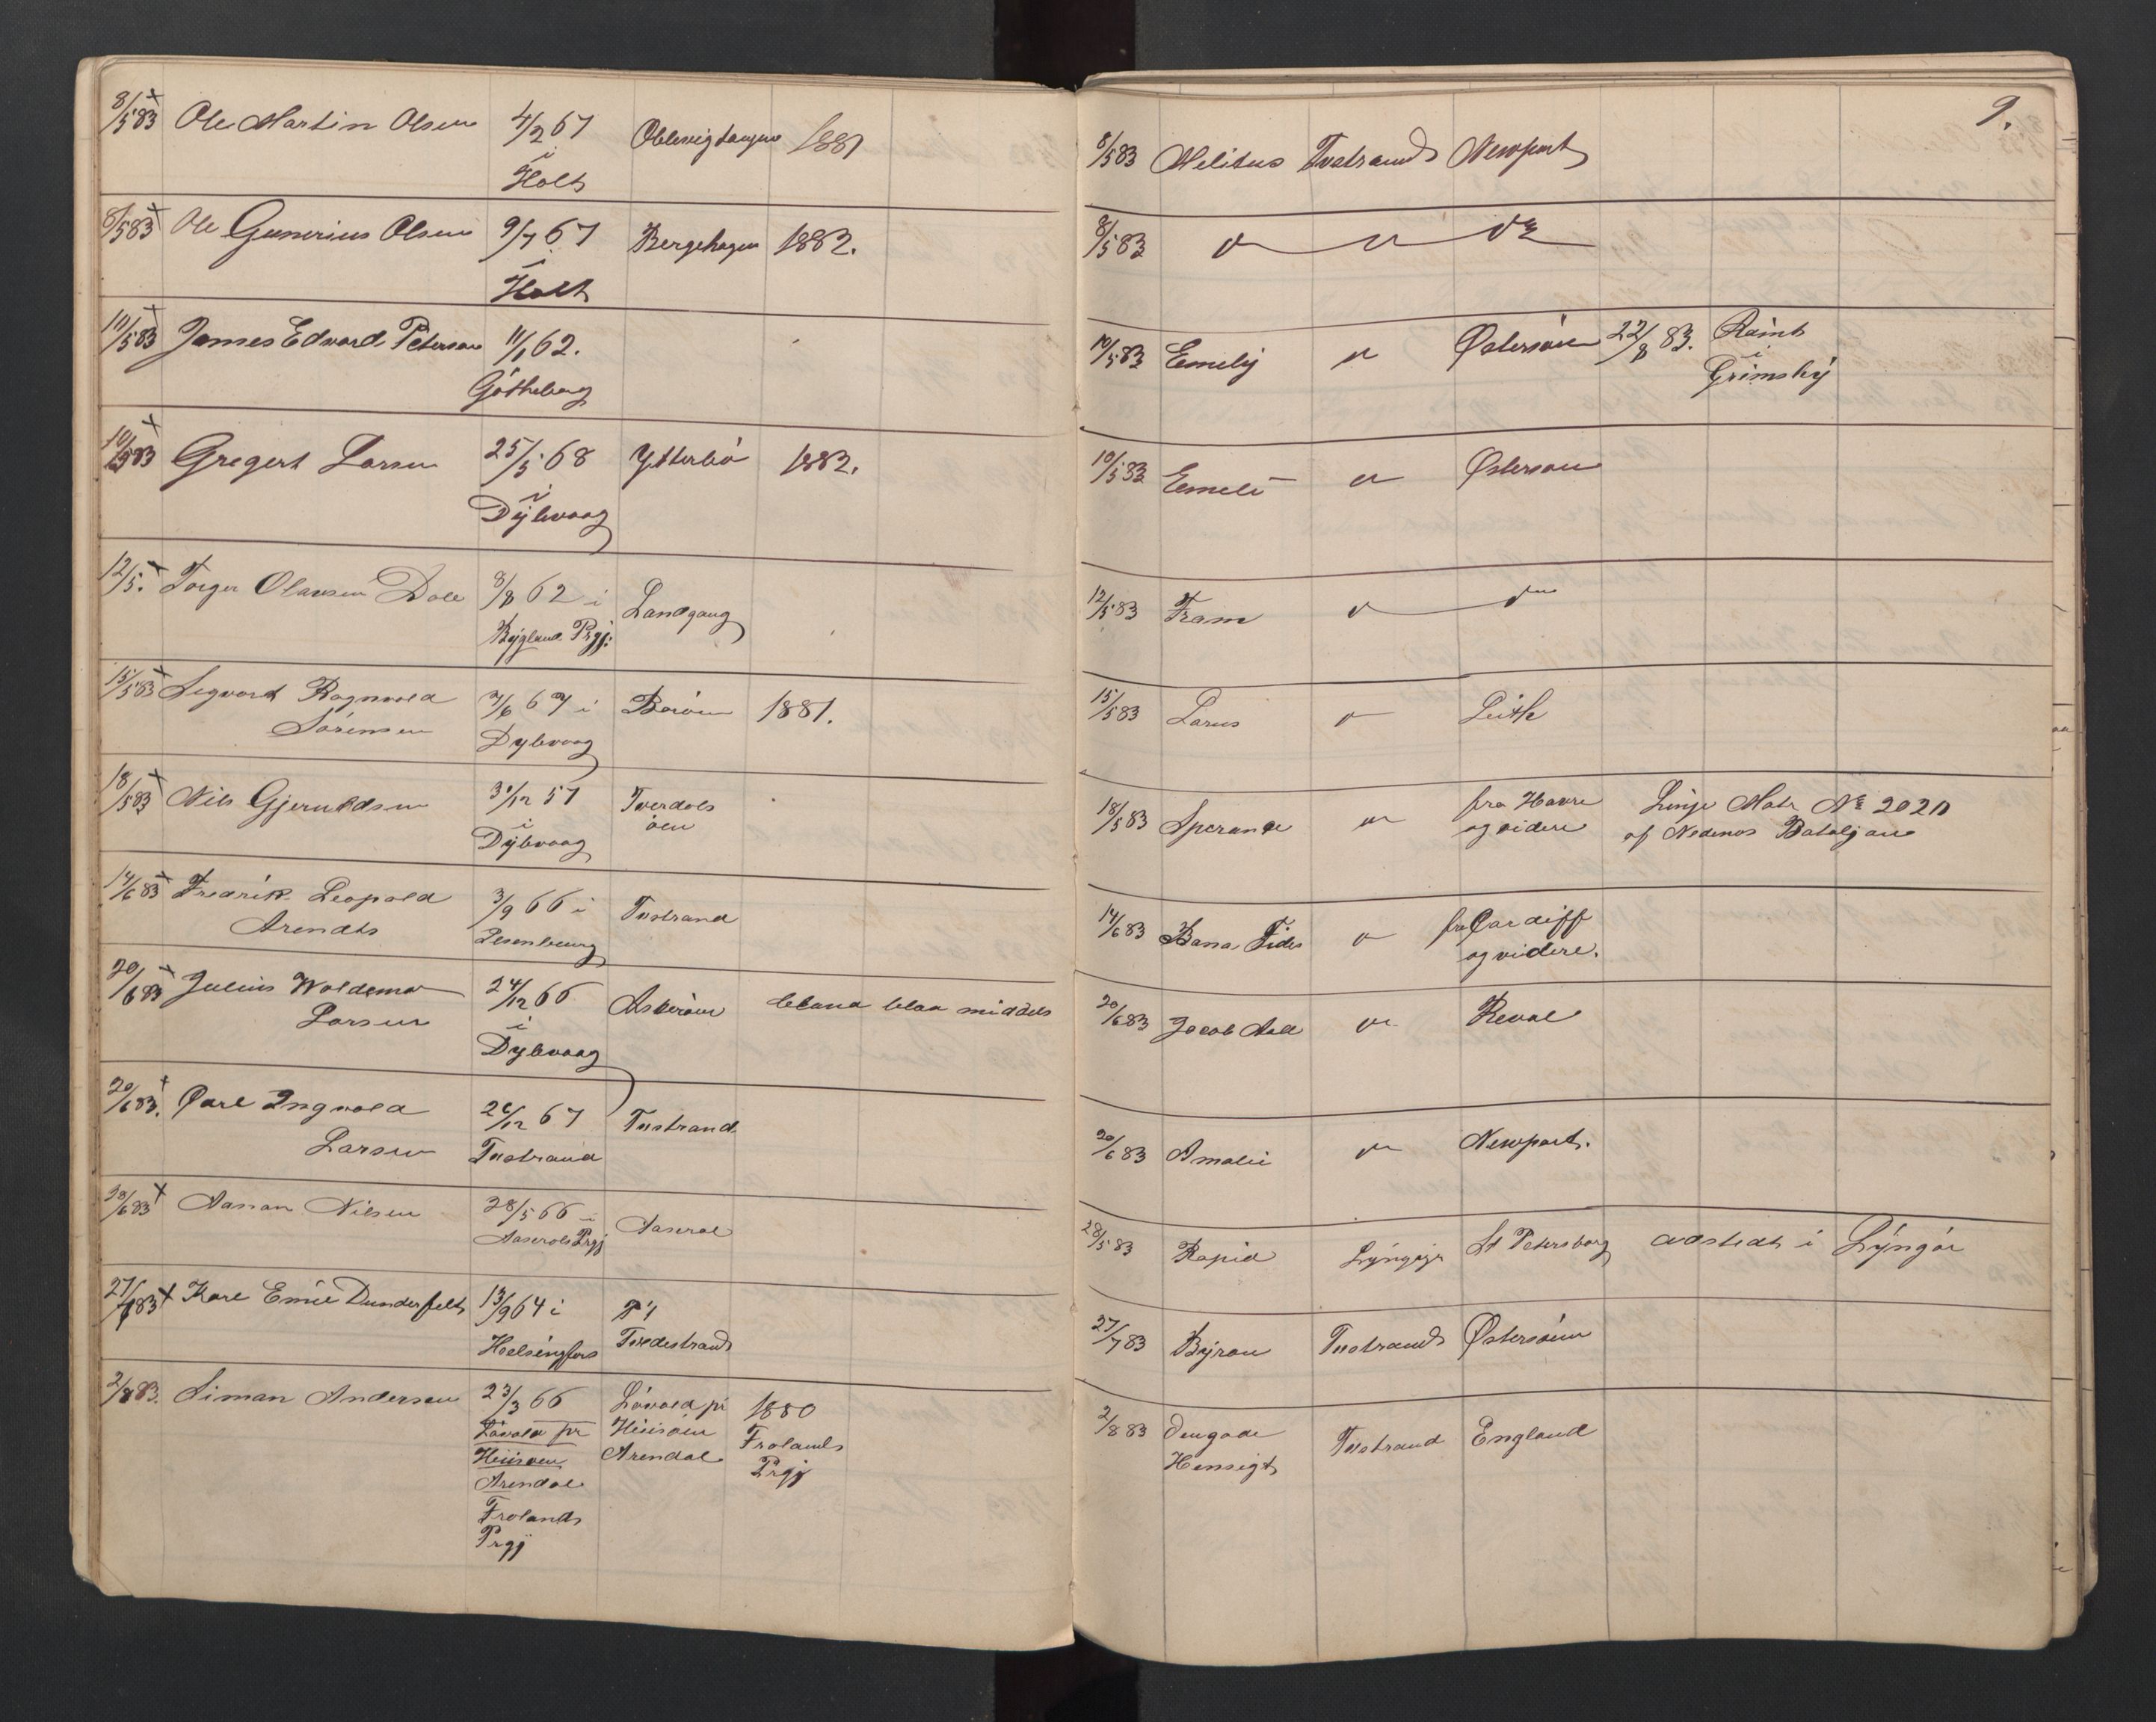 8/5 83 Ole Martin Olsen 4/2 67 i Holt 1881
8/5 83 Ole Gunerius Olsen 9/7 67 i Holt Bergehagen 1882.
10/5 83 James Edvard Peterson 11/1 62. Götheborg
10/5 83 Gregert Larsen 25/5 68 i Dybvaag Ytterbö 1882.
12/5. Torger Olausen Dale 8/8 62 i Bygland Prgj: Landgang
15/5 83 Sigvart Ragnvald
Sörensen 7/6 67 i Dybvaag Boröen 1881.
18/5 83 Nils Gjeruldsen 31/12 57 i Dybvaag Tverdals
öen
14/6 83 Fredrik Leopold
Arendts 3/9 66 i Tvstrand
20/6 83 Julius Woldemar
Larsen 24/12 66 i Dybvaag Askeröen blond blaa middels
20/6 83. Carl Ingvald
Larsen 26/12 67 Tvstrand Tvstrand
28/6 83 Aanon Nilsen 28/5 66 i Aaserals Prgj Aaseral
27/7 83 Karl Emil Dunderfelt 13/9 64 i Helsingfors
Tvedestrand
2/8 83. Simon Andersen 23/3 66 Lövold pr 1880
Lövold pr Hiisöen Frolands
Hiisöen Arendal Prgj
Arendal
Frolands
Prgj
9.
8/5 83 Melitus Tvstrand Newport
8/5 83 do
10/5 83 Emely " Östersöen 22/8 83. Rømt
i
Grimsby
10/5 83 Emeli " Östersöen
12/5 83 Fram " do
15/5 83 Larus " Leith
18/5 83 Speranse " fra Havre Linje Matr No 2020
og videre af Nedenes Bataljon
14/6 83 Bona Fides " fra Cardiff
og videre.
20/6 83 Jacob Aall " Reval
20/6 83 Amalie " Newport.
28/5 83 Rapid Lyngör St Petersborg adstedt i Lyngör
27/7 83 Byron Tvstrand Östersöen
2/8 83 Den gode
Hensigt Tvstrand England